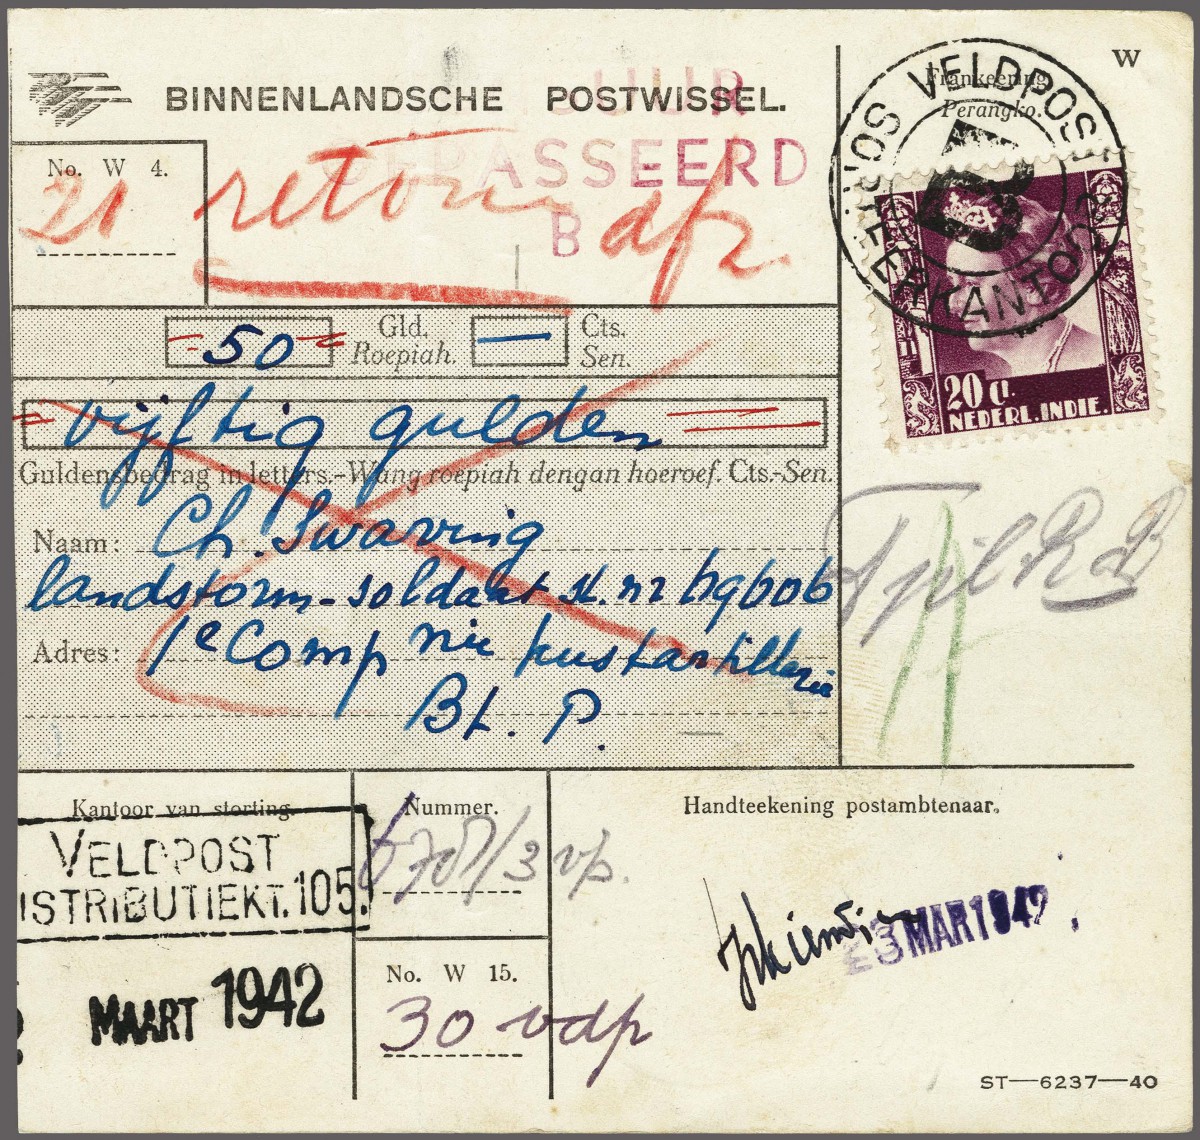 W
BINNENLANDSCHE POSTWISSEL.
Frankeering.
Perangko.
VELDPOST
KANTOOR
B
No. W 4.
21
UUR
GEPASSEERD
B
retour
50
Gld.
Roepiah.
—
Cts.
Sen.
20 ct.
NEDERL. INDIE.
vijftig gulden
Guldensbedrag in letters.-Wang roepiah dengan hoeroef. Cts.-Sen.
Naam: Ch. Swaving
landstorm-soldaat st. nr 69606
Adres: 1e Comp nie kustartillerie
Bt. P.
Kantoor van storting.
Nummer.
Handteekening postambtenaar.
VELDPOST
ISTRIBUTIEKT. 105.
vp.
3 MAR 1942
MAART 1942
No. W 15.
30 vdp
ST—6237—40